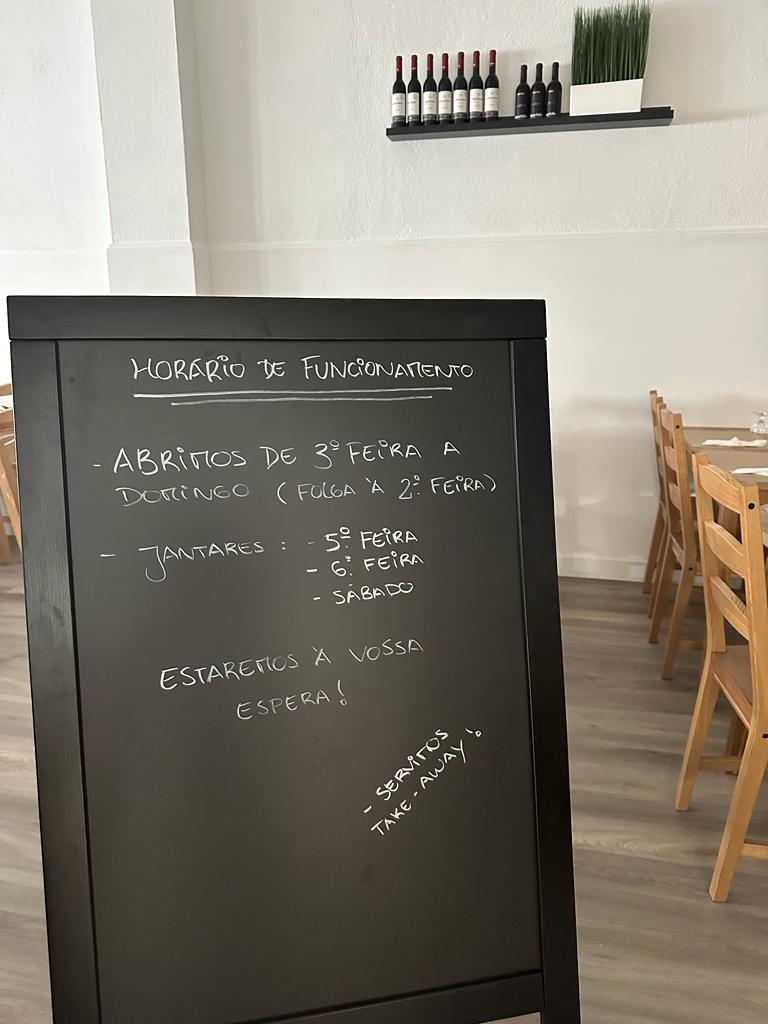 HORÁRIO DE FUNCIONAMENTO
- ABRIMOS DE 3º FEIRA A
DOMINGO (FOLGA À 2º FEIRA)
- JANTARES : - 5º FEIRA
- 6º FEIRA
- SÁBADO
ESTAREMOS À VOSSA
ESPERA!
- SERVIMOS
TAKE-AWAY!